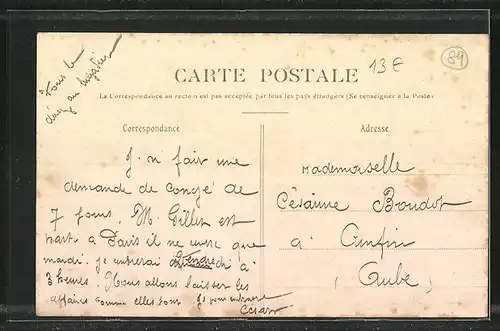 13€
89
CARTE POSTALE
La Correspondance au recto n'est pas acceptée par tous les pays étrangers (Se renseigner à la Poste)
Correspondance
J. n' fair une
demande de congé de
7 jours. M. Gillet est
parti a Paris il ne que
mardi. je vendredi a
3 heures. Nous allons laisser les
affaires comme elles sont
César
Adresse
Mademoiselle
Césarine Boudot
a
(Aube)